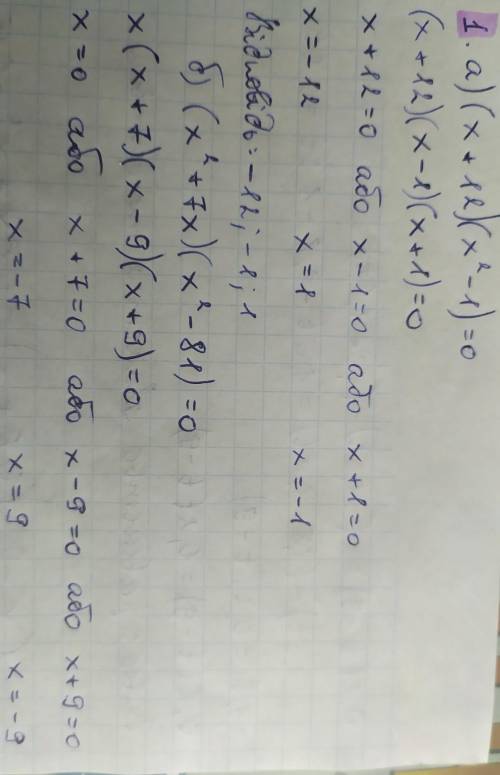 1. а) (x + 12)(x² - 1) = 0
(x + 12)(x - 1)(x + 1) = 0
x + 12 = 0 або x - 1 = 0 або x + 1 = 0
x = -12 x = 1 x = -1
Відповідь: -12; -1; 1
б) (x² + 7x)(x² - 81) = 0
x(x + 7)(x - 9)(x + 9) = 0
x = 0 або x + 7 = 0 або x - 9 = 0 або x + 9 = 0
x = -7 x = 9 x = -9